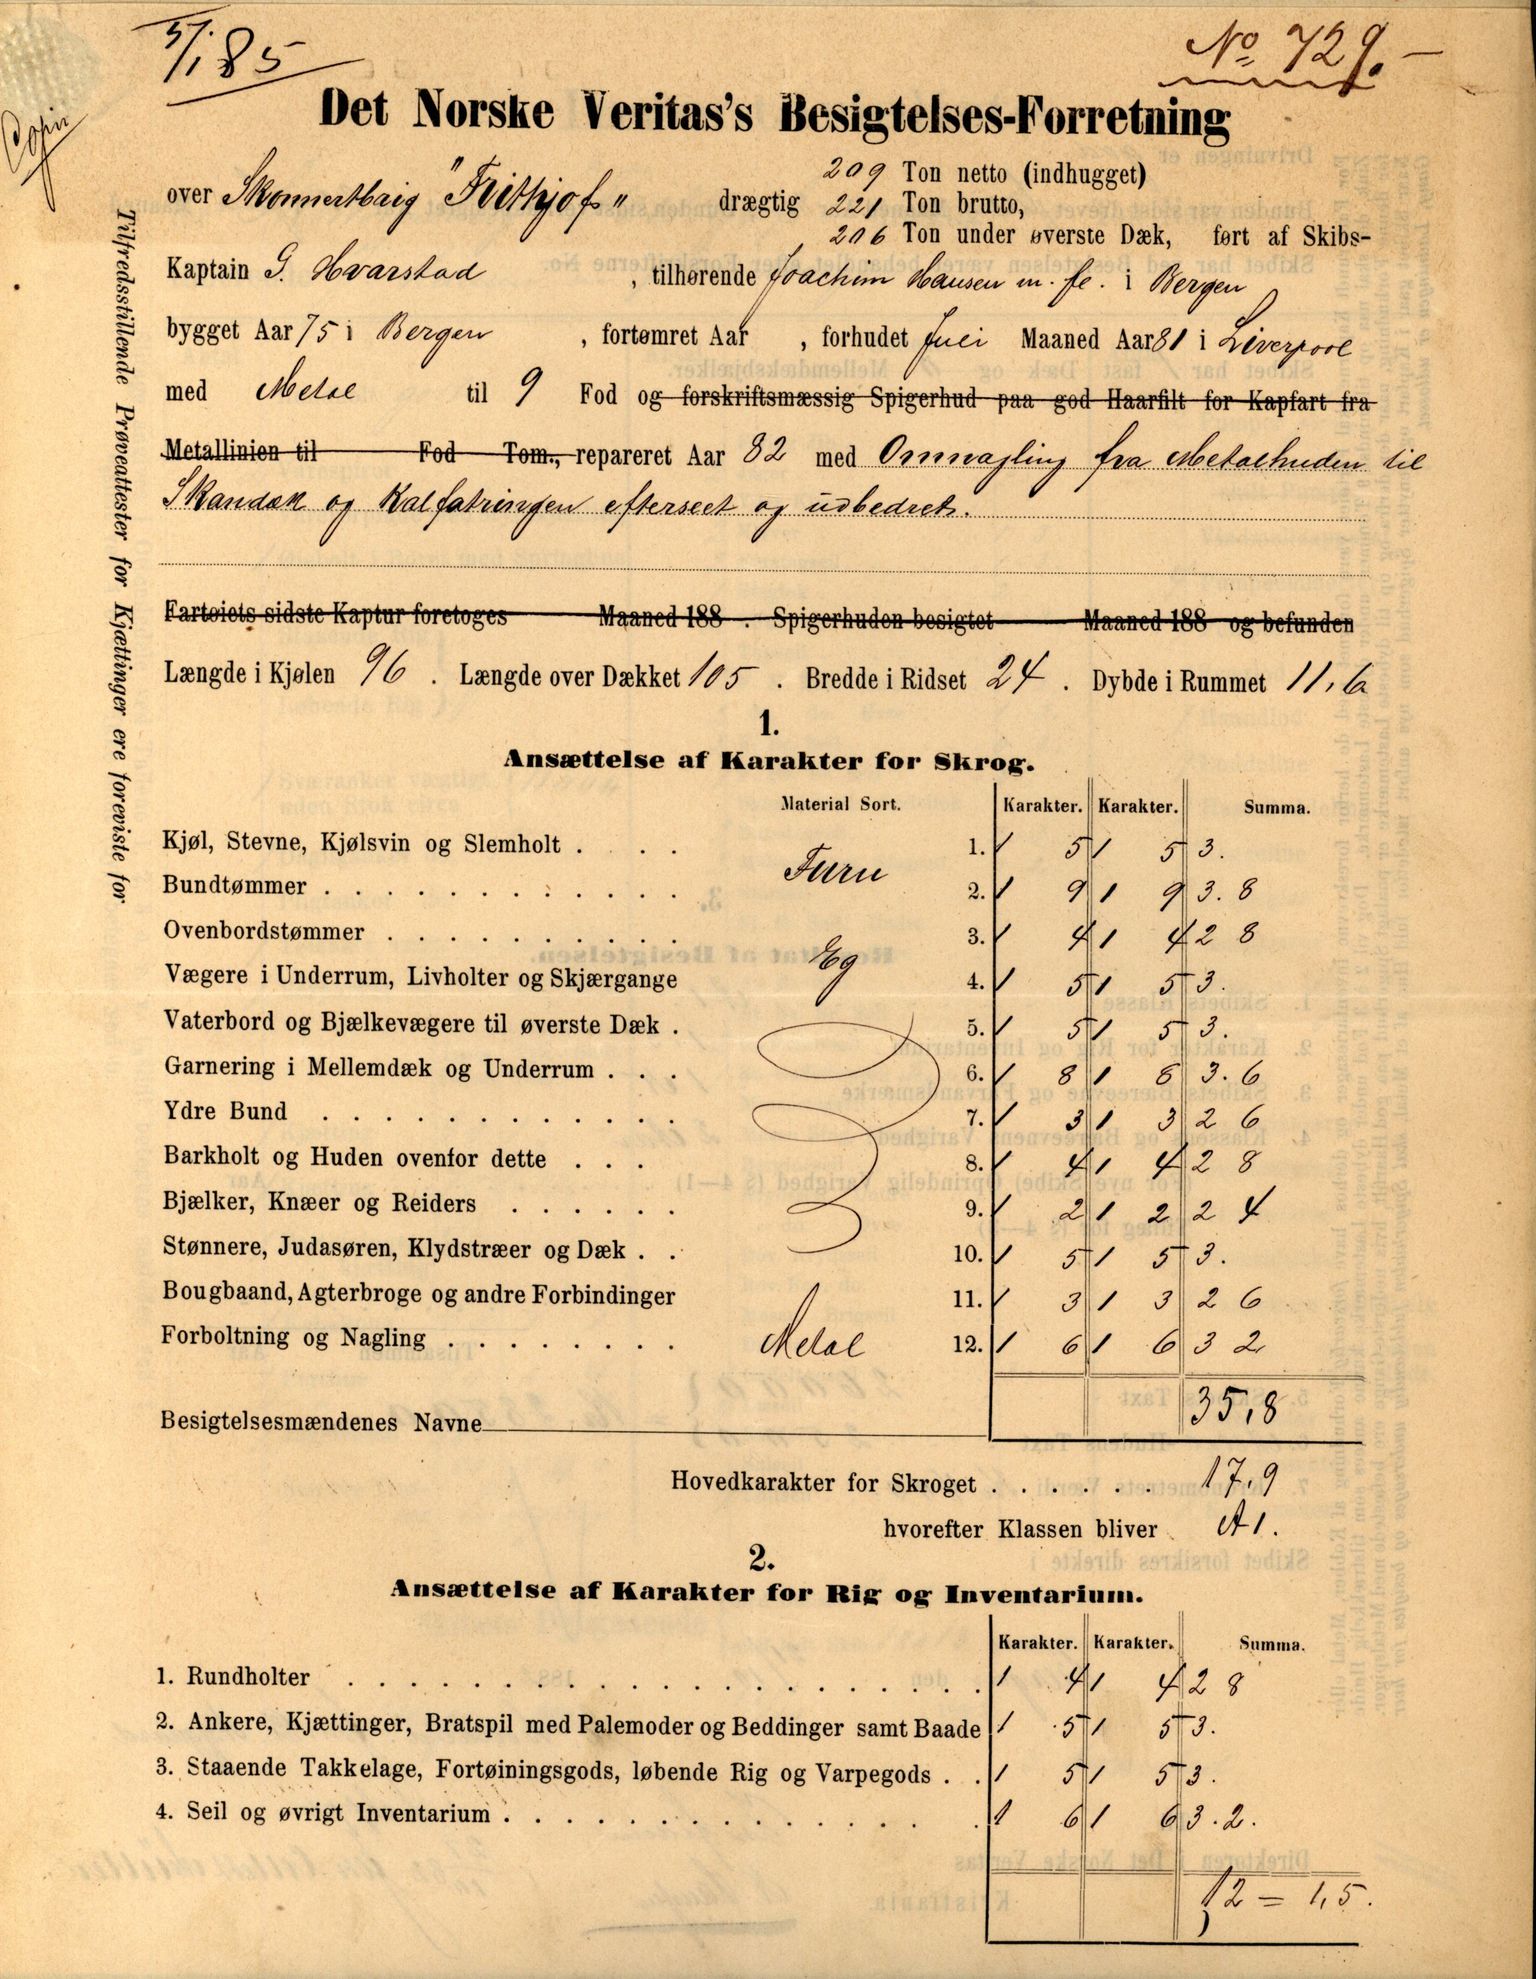 5/1 85
No 729.
Copi
Det Norske Veritas's Besigtelses-Forretning
209 Ton netto (indhugget)
over Skonnertbrig "Frithjof" drægtig 221 Ton brutto,
206 Ton under øverste Dæk, ført af Skibs-
Kaptain G. Hvarstad , tilhørende Joachim Hansen m. fl. i Bergen
bygget Aar 75 i Bergen , fortømret Aar , forhudet Juli Maaned Aar 81 i Liverpool
med Metal til 9 Fod og forskriftsmæssig Spigerhud paa god Haarfilt for Kapfart fra
Metallinien til Fod Tom., repareret Aar 82 med Omnagling fra Metalhuden til
Skandæk og Kalfatringen efterseet og udbedret.
Fartøiets sidste Kaptur foretoges Maaned 188 . Spigerhuden besigtet Maaned 188 og befunden
Længde i Kjølen 96 . Længde over Dækket 105 . Bredde i Ridset 24 . Dybde i Rummet 11,6
Tilfredsstillende Prøveattester for Kjættinger ere foreviste for
1.
Ansættelse af Karakter for Skrog.
Material Sort. Karakter. Karakter. Summa.
Kjøl, Stevne, Kjølsvin og Slemholt . . . 1. 1 5 1 5 3.
Furu
Bundtømmer . . . . . . . . . . . 2. 1 9 1 9 3. 8
Ovenbordstømmer . . . . . . . . . 3. 1 4 1 4 2 8
Eg
Vægere i Underrum, Livholter og Skjærgange 4. 1 5 1 5 3.
Vaterbord og Bjælkevægere til øverste Dæk . 5. 1 5 1 5 3.
Garnering i Mellemdæk og Underrum . . . 6. 1 8 1 8 3. 6
Ydre Bund . . . . . . . . . . . 7. 1 3 1 3 2 6
Barkholt og Huden ovenfor dette . . . 8. 1 4 1 4 2 8
Bjælker, Knæer og Reiders . . . . . . 9. 1 2 1 2 2 4
Stønnere, Judasøren, Klydstræer og Dæk . . 10. 1 5 1 5 3.
Bougbaand, Agterbroge og andre Forbindinger 11. 1 3 1 3 2 6
Forboltning og Nagling . . . . . . . . Metal 12. 1 6 1 6 3 2
35,8
Besigtelsesmændenes Navne
Hovedkarakter for Skroget . . . . . . 17,9
hvorefter Klassen bliver A1.
2.
Ansættelse af Karakter for Rig og Inventarium.
Karakter. Karakter. Summa.
1. Rundholter . . . . . . . . . . . . . . 1 4 1 4 2 8
2. Ankere, Kjættinger, Bratspil med Palemoder og Beddinger samt Baade 1 5 1 5 3.
3. Staaende Takkelage, Fortøiningsgods, løbende Rig og Varpegods . . 1 5 1 5 3.
4. Seil og øvrigt Inventarium . . . . . . . . . . 1 6 1 6 3. 2.
12 = 1,5.